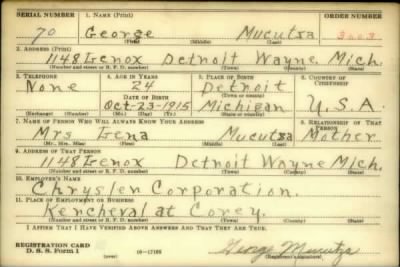 SERIAL NUMBER 1. NAME (Print) ORDER NUMBER
70 George Mucutza 3003
(First) (Middle) (Last)
2. ADDRESS (Print)
1148 Lenox Detroit Wayne Mich.
(Number and street or R. F. D. number) (Town) (County) (State)
3. TELEPHONE 4. AGE IN YEARS 5. PLACE OF BIRTH 6. COUNTRY OF CITIZENSHIP
None 24 Detroit
DATE OF BIRTH (Town or county)
Oct-23-1915 Michigan U.S.A.
(Exchange) (Number) (Mo.) (Day) (Yr.) (State or country)
7. NAME OF PERSON WHO WILL ALWAYS KNOW YOUR ADDRESS 8. RELATIONSHIP OF THAT PERSON
Mrs Lena Mucutza Mother
(Mr., Mrs., Miss) (First) (Middle) (Last)
9. ADDRESS OF THAT PERSON
1148 Lenox Detroit Wayne Mich.
(Number and street or R. F. D. number) (Town) (County) (State)
10. EMPLOYER'S NAME
Chrysler Corporation.
11. PLACE OF EMPLOYMENT OR BUSINESS
Kercheval at Corey.
(Number and street or R. F. D. number) (Town) (County) (State)
I AFFIRM THAT I HAVE VERIFIED ABOVE ANSWERS AND THAT THEY ARE TRUE.
REGISTRATION CARD
D. S. S. Form 1 16-17105 George Mucutza